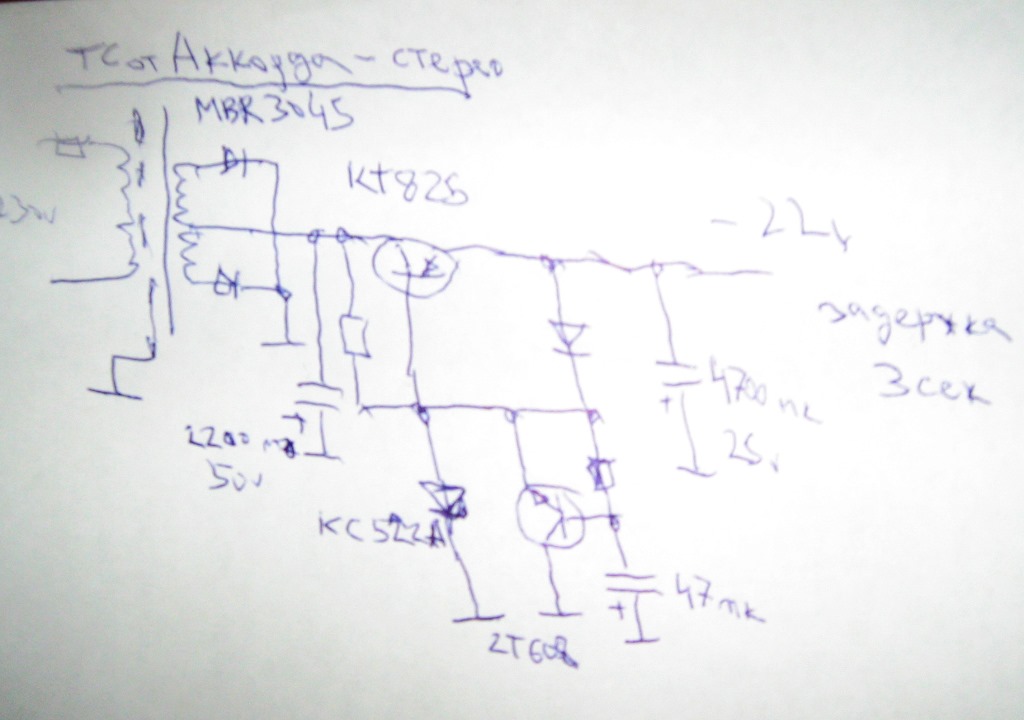 ТС от Аккорда-стерео
MBR3045
230v
КТ825
-22v
задержка
3 сек
4700 мк
25v
2200 мк
50v
КС522А
47 мк
2Т608